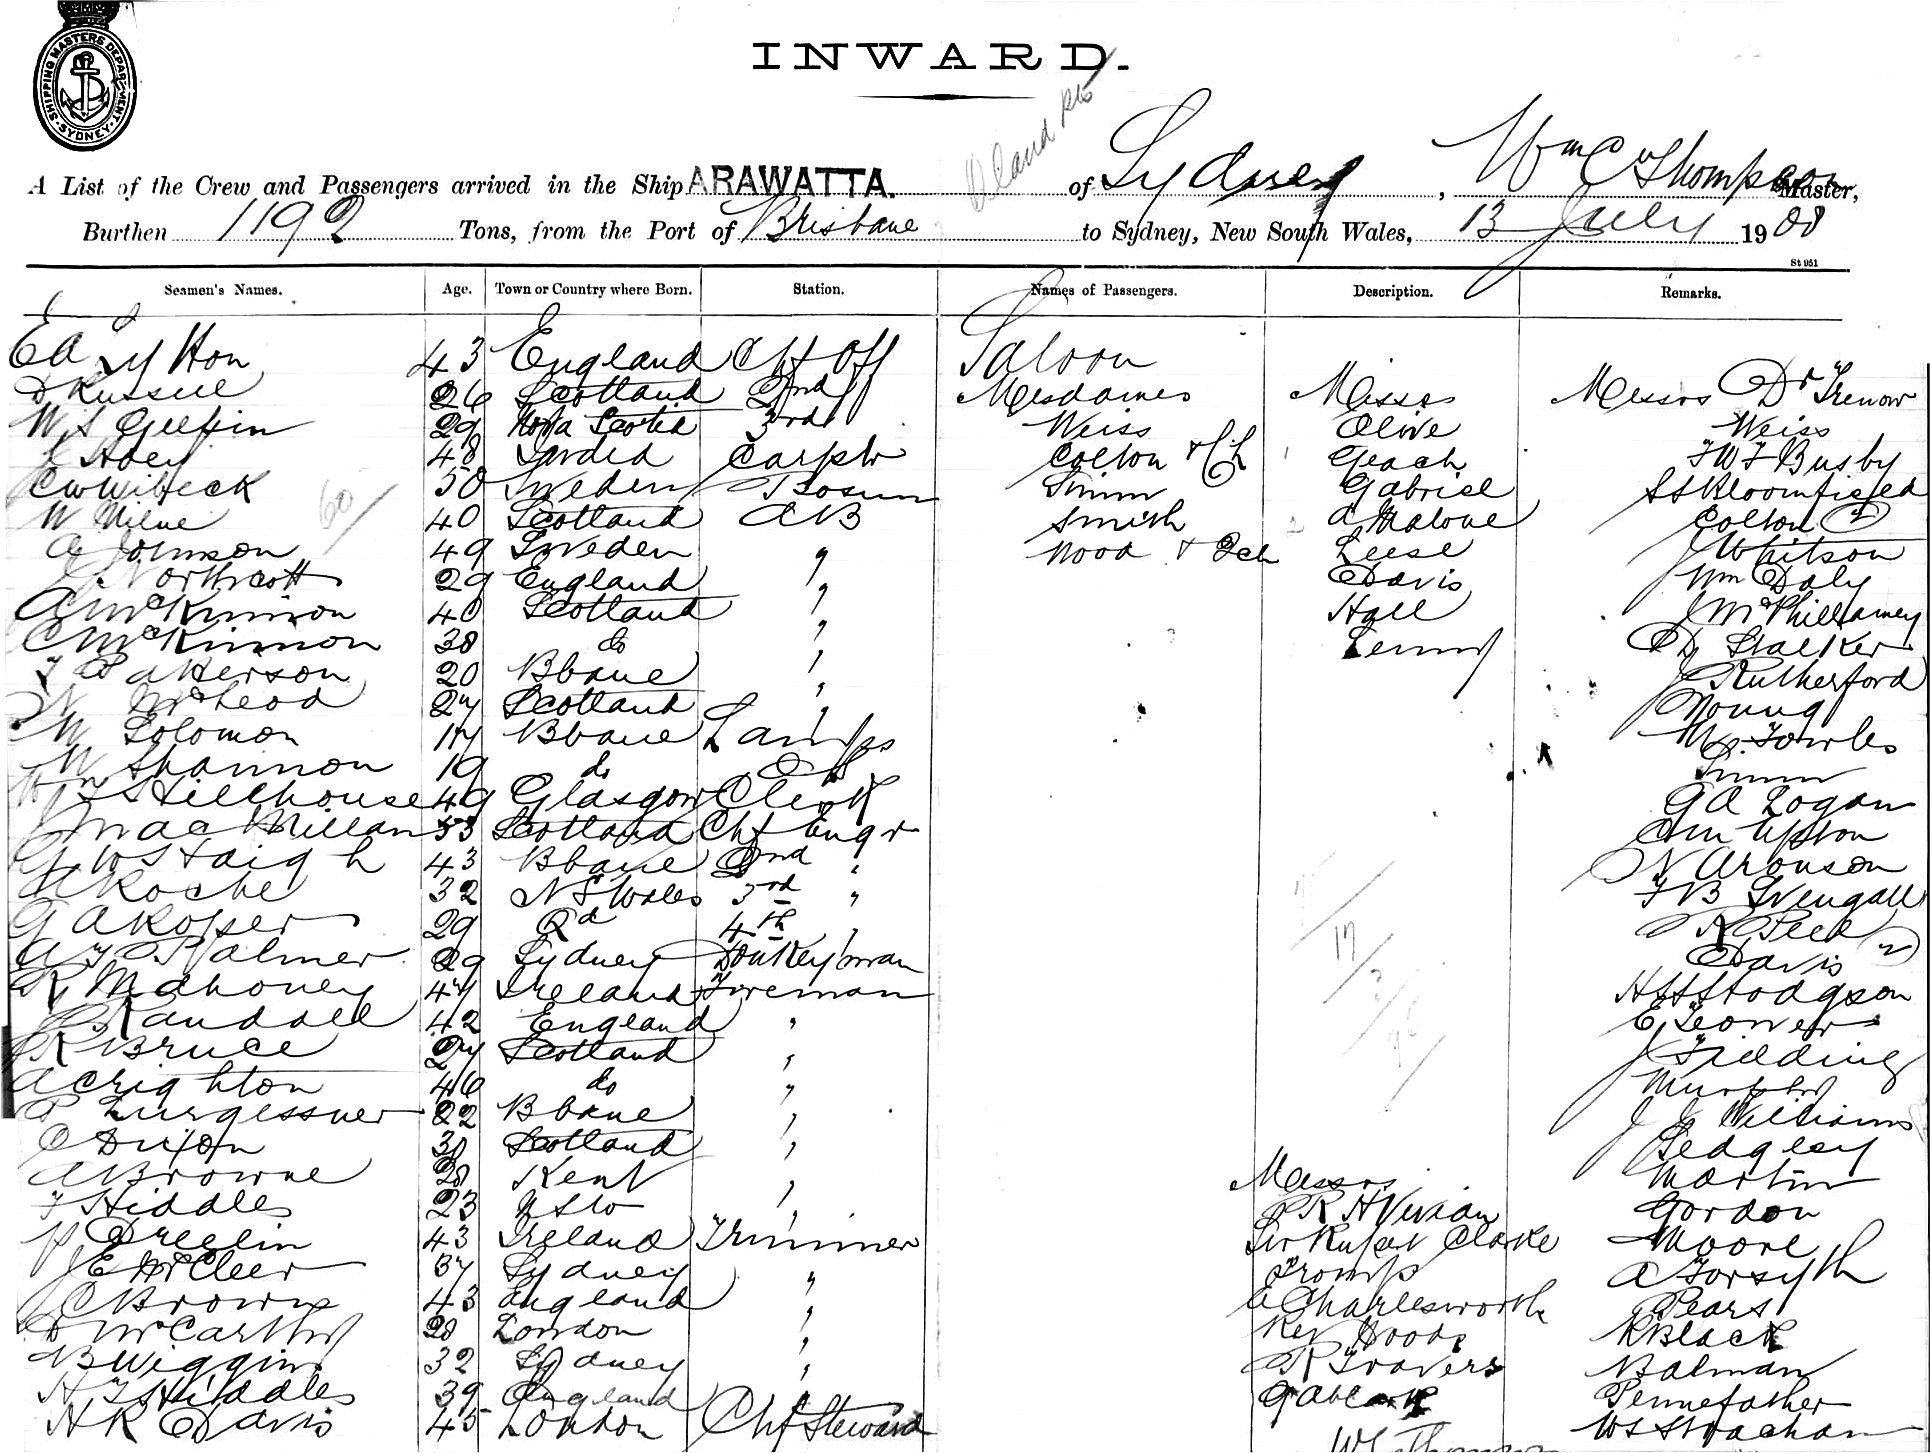 SHIPPING MASTERS DEPARTMENT
SYDNEY
INWARD.
A List of the Crew and Passengers arrived in the Ship ARAWATTA. of Sydney, Wm C Thompson Master,
Burthen 1192 Tons, from the Port of Brisbane to Sydney, New South Wales, 13 July 1908
St 951
Seamen's Names. Age. Town or Country where Born. Station. Names of Passengers. Description. Remarks.
43 England Chf Off Saloon
D Russell 26 Scotland 2nd Mesdames Misses Messrs Dr Trenow
29 Nova Scotia 3rd Weiss Olive Weiss
Hoey 48 Carptr Colton & Ch Geach F W F Busby
C W Wibeck 50 Sweden Bosun Simm Gabriel Bloomfield
W Milne 40 Scotland AB Smith a Malone Colton (2)
A Johnson 49 Sweden " Wood & 2ch Leese J Whitson
60
J Northcott 29 England " Davis Wm Daly
A McKinnon 40 Scotland " Hall J McPhillamey
C McKinnon 38 do " Lenny D Stalker
T Patterson 20 Bbane " J Rutherford
N McLeod 27 Scotland " Young
W Solomon 17 Bbane Lamps Mr Fowles
W Shannon 19 do OS Simm
Wm J Stillhouse 49 Glasgow Clerk G A Logan
J MacMillan 53 Scotland Chf Engr C M Upton
G W Haigh 43 Bbane 2nd " N Aronson
A Roche 32 N S Wales 3rd " F B
G A Roper 29 Qd 4th " R Peel
A F Palmer 29 Sydney Donkeyman Davis
R Mahoney 47 Ireland Fireman H H Hodgson
Randall 42 England " E
R Bruce 27 Scotland " J Fielding
A Crighton 46 do " Murphy
22 Bbane " J J Williams
C Dixon 30 Scotland " Sedgley
A Browne 28 Kent " Messrs Martin
F Hiddles 23 NSW " R H Vivian Gordon
Dreelin 43 Ireland Trimmer Sir Rupert Clarke Moore
J E McCleer 37 Sydney " Tromp A Forsyth
J C Brown 43 England " A Charlesworth Pears
D McCarthy 28 London " Rev Woods R Black
B Wiggins 32 Sydney " R Travers Balman
H J Hiddles 39 England " Pennefather
H R Davis 45 London Chf Steward W S Strachan